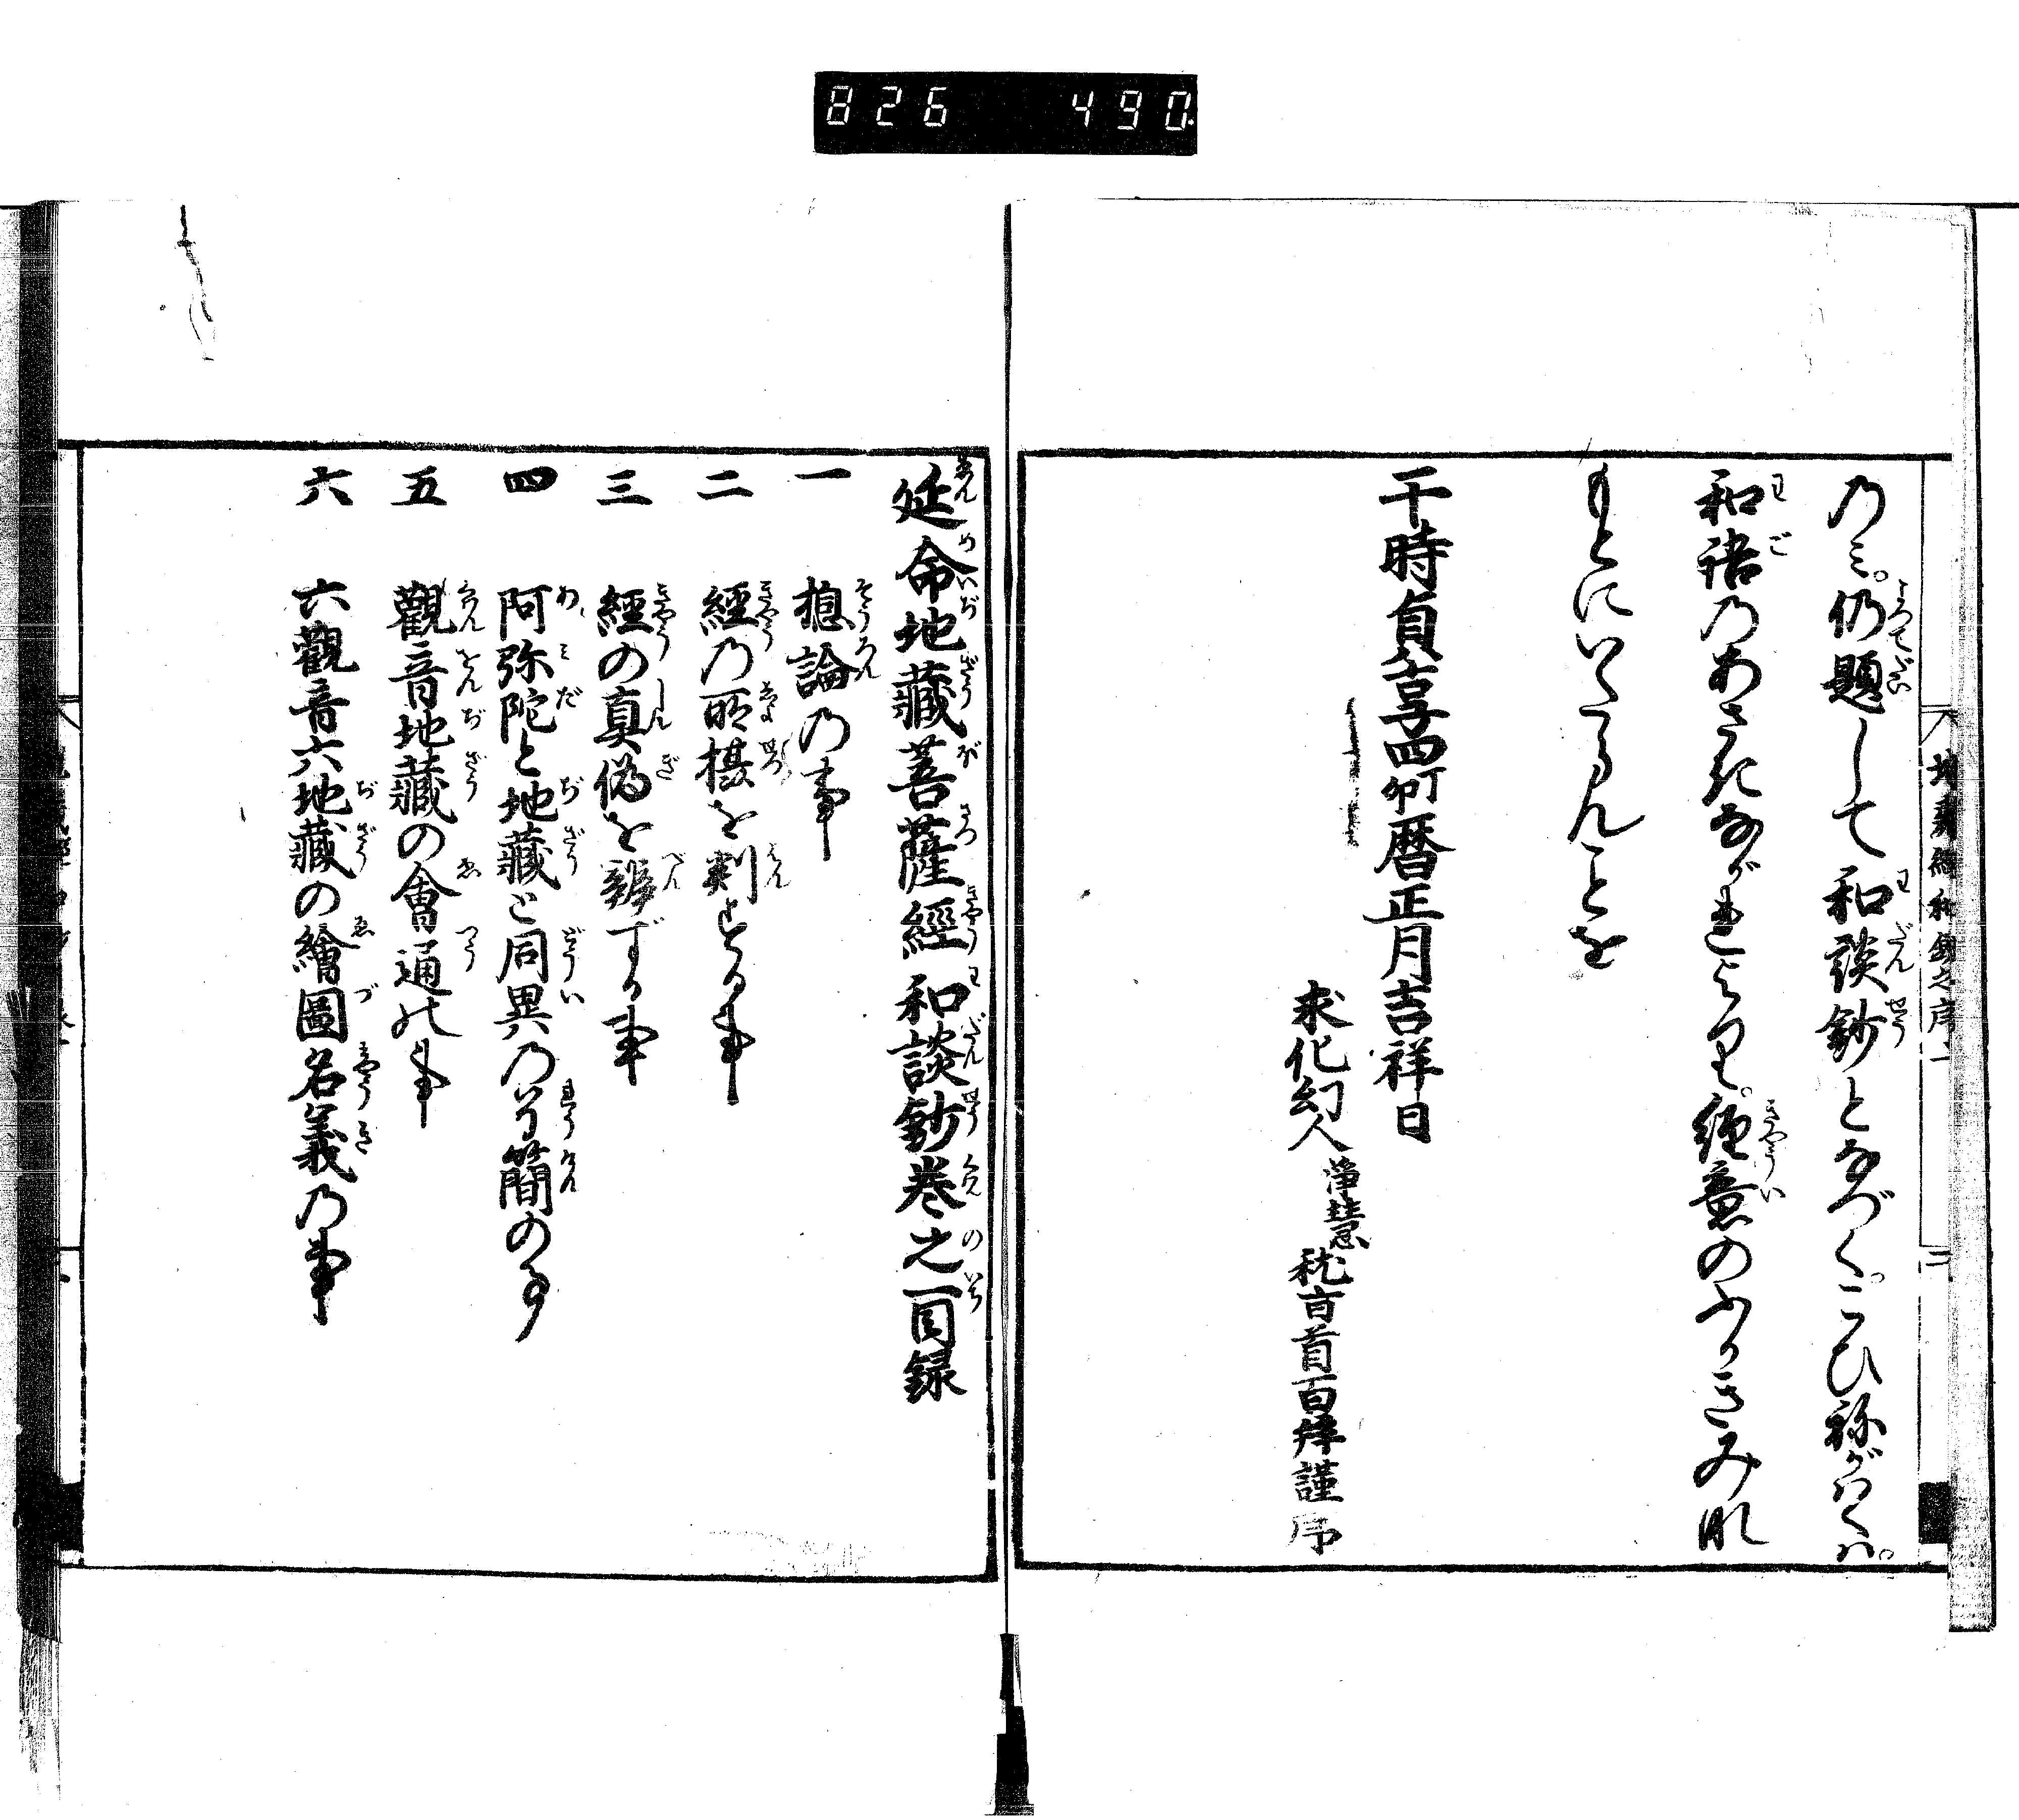 826 490
のミ。仍題して和談鈔となづく。こひねがハくハ。
和語のあさきながれより。經意のふかきみな
もとにいたらんことを
于時貞享四卯暦正月吉祥日
求化幻人 淨慧 稽首百拜謹序
延命地藏菩薩經和談鈔卷之一目録
一 揔論の事
二 經の所撰を判ずる事
三 經の真偽を辨ずる事
四 阿弥陀と地藏と同異の了簡の事
五 觀音地藏の會通の事
六 六觀音六地藏の繪圖名義の事